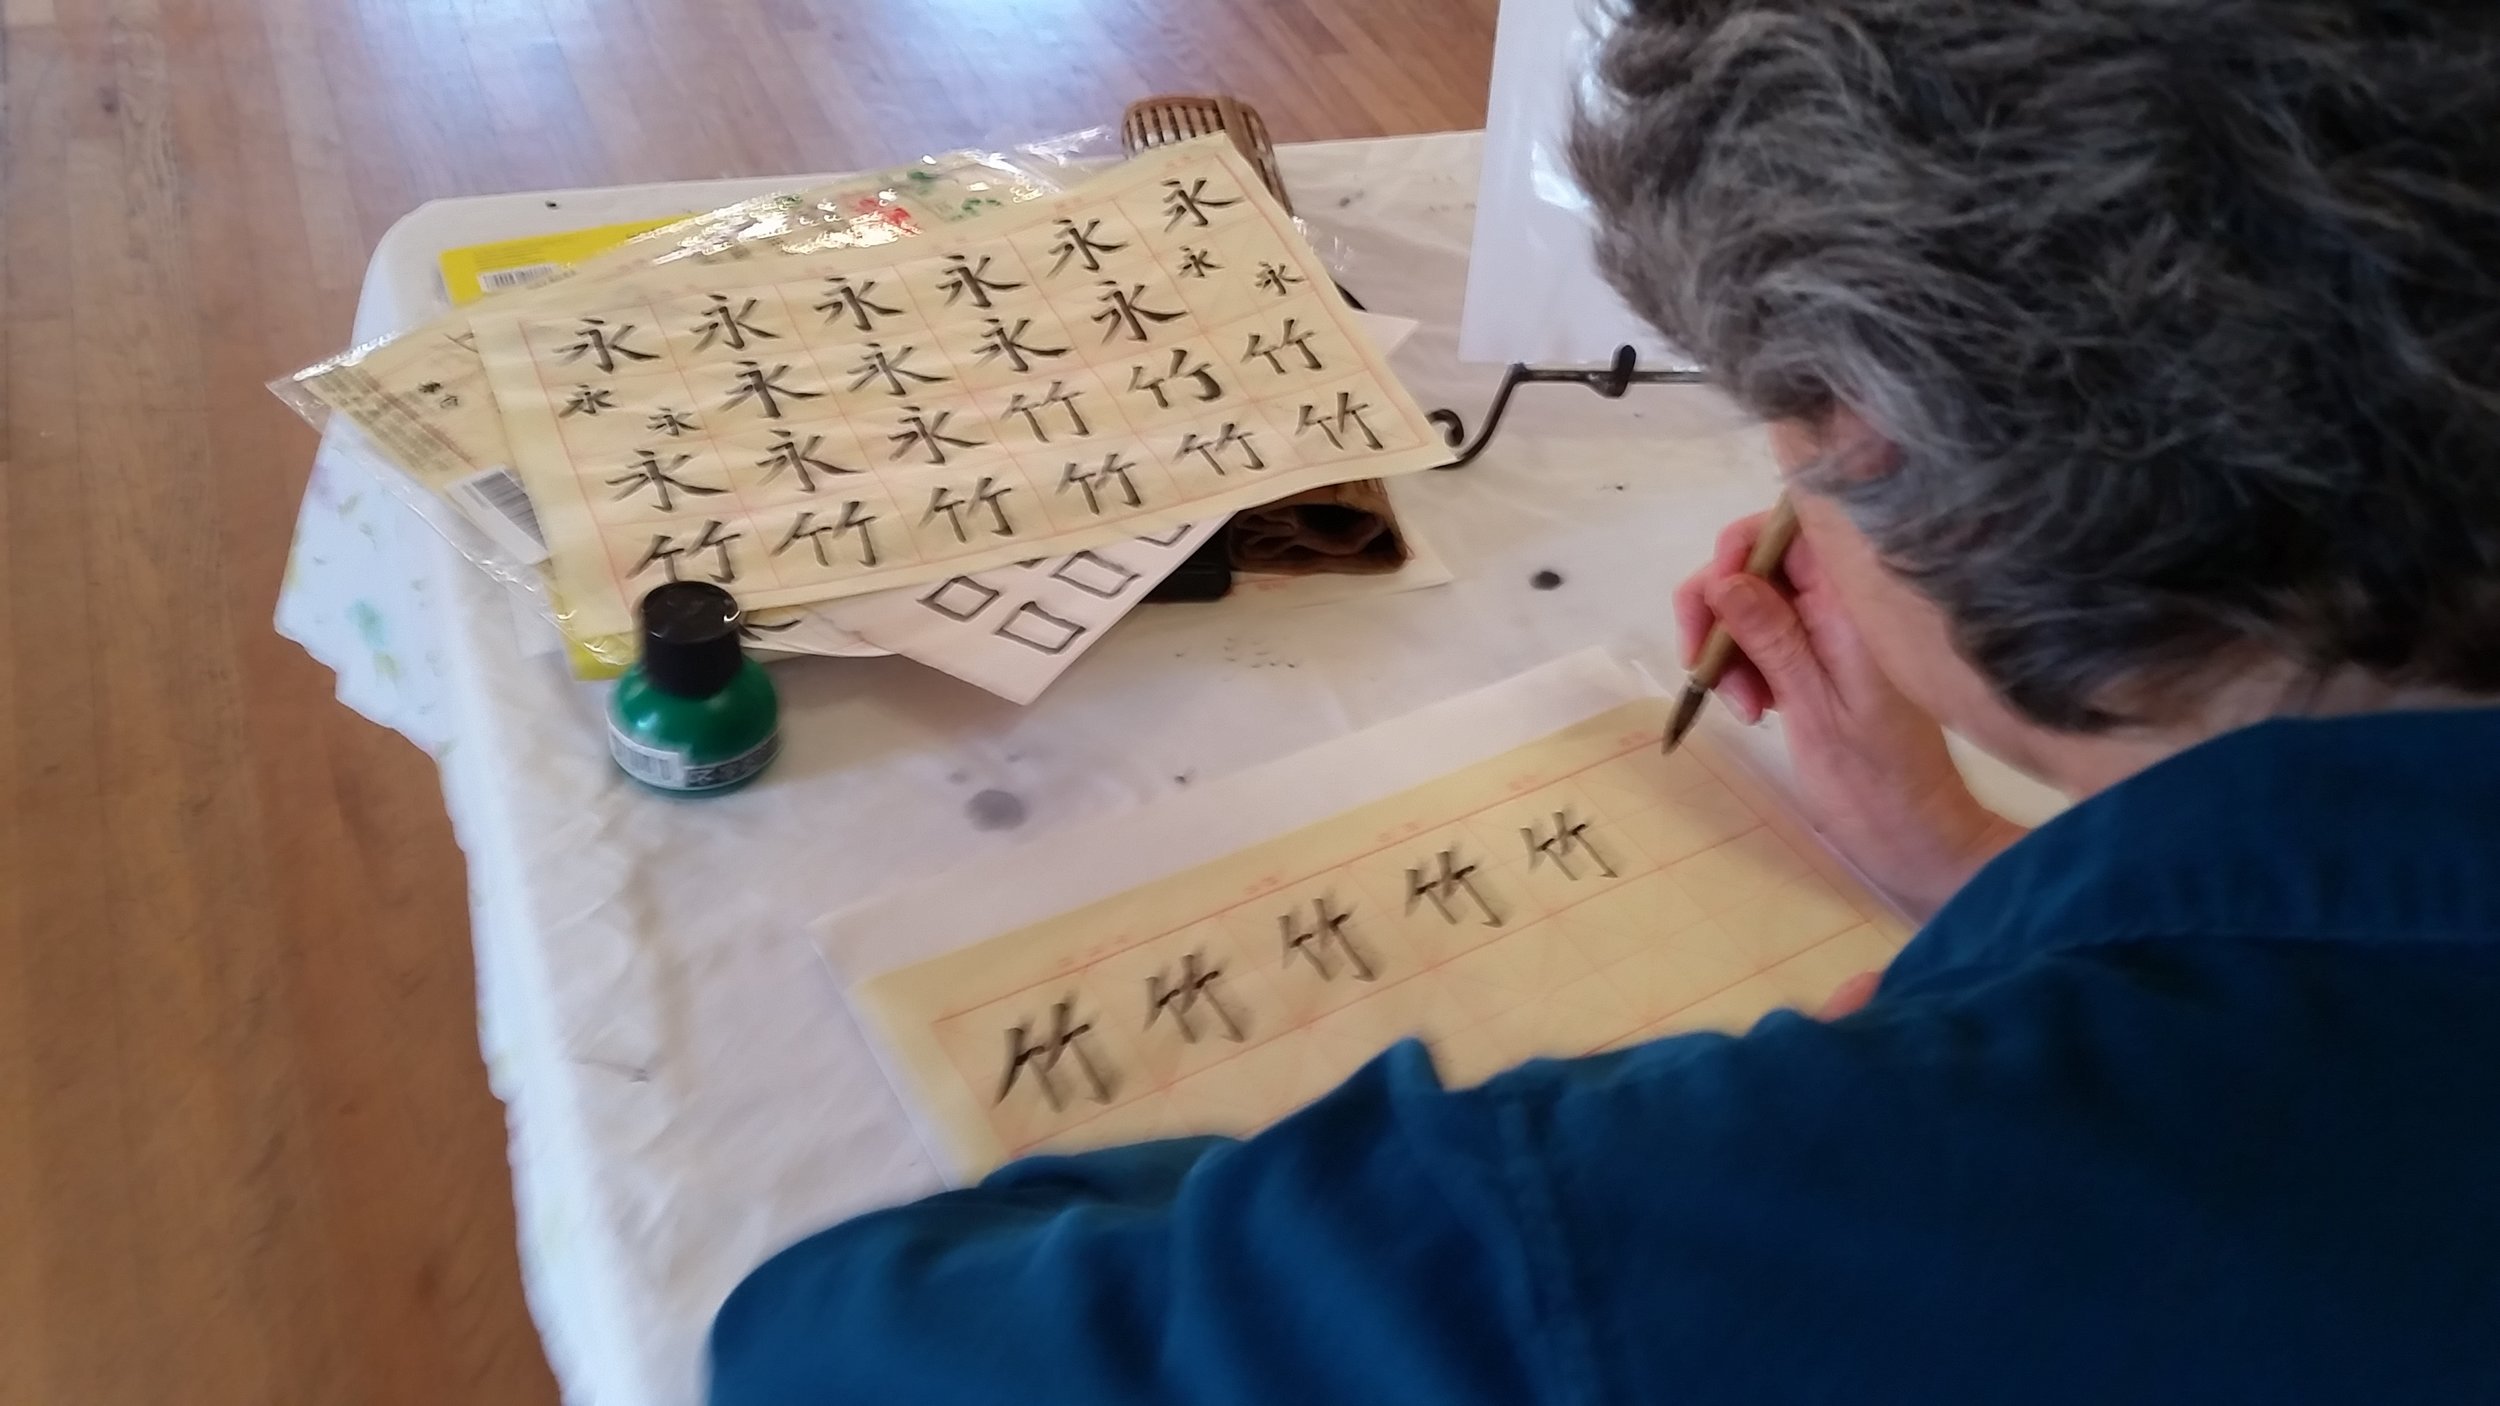 永永永永永永
永永永永永永永永
永永永竹竹竹
竹竹竹竹竹竹
口
口口
竹竹竹竹竹